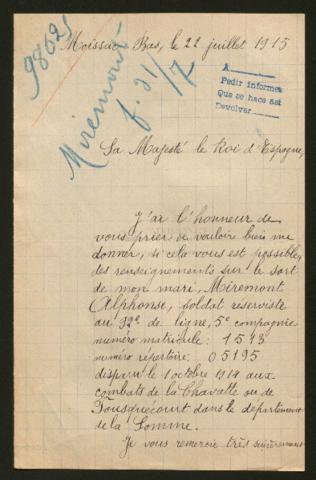 9862
Miremont
f. 31/7
Moissac Bas, le 22 juillet 1915
A
Pedir informes
Que se hace así
Devolver
Sa Majesté le Roi d'Espagne,
J'ai l'honneur de
vous prier de vouloir bien me
donner, si cela vous est possible,
des renseignements sur le sort
de mon mari, Miremont
Alphonse, soldat reserviste
au de ligne, 5e compagnie
numéro matricule: 1513
numéro répertoire: 05195
disparu le 1 octobre 1914 aux
combats de la Chavatte ou de
Fousquecourt dans le département
de la Somme.
Je vous remercie très sincèrement